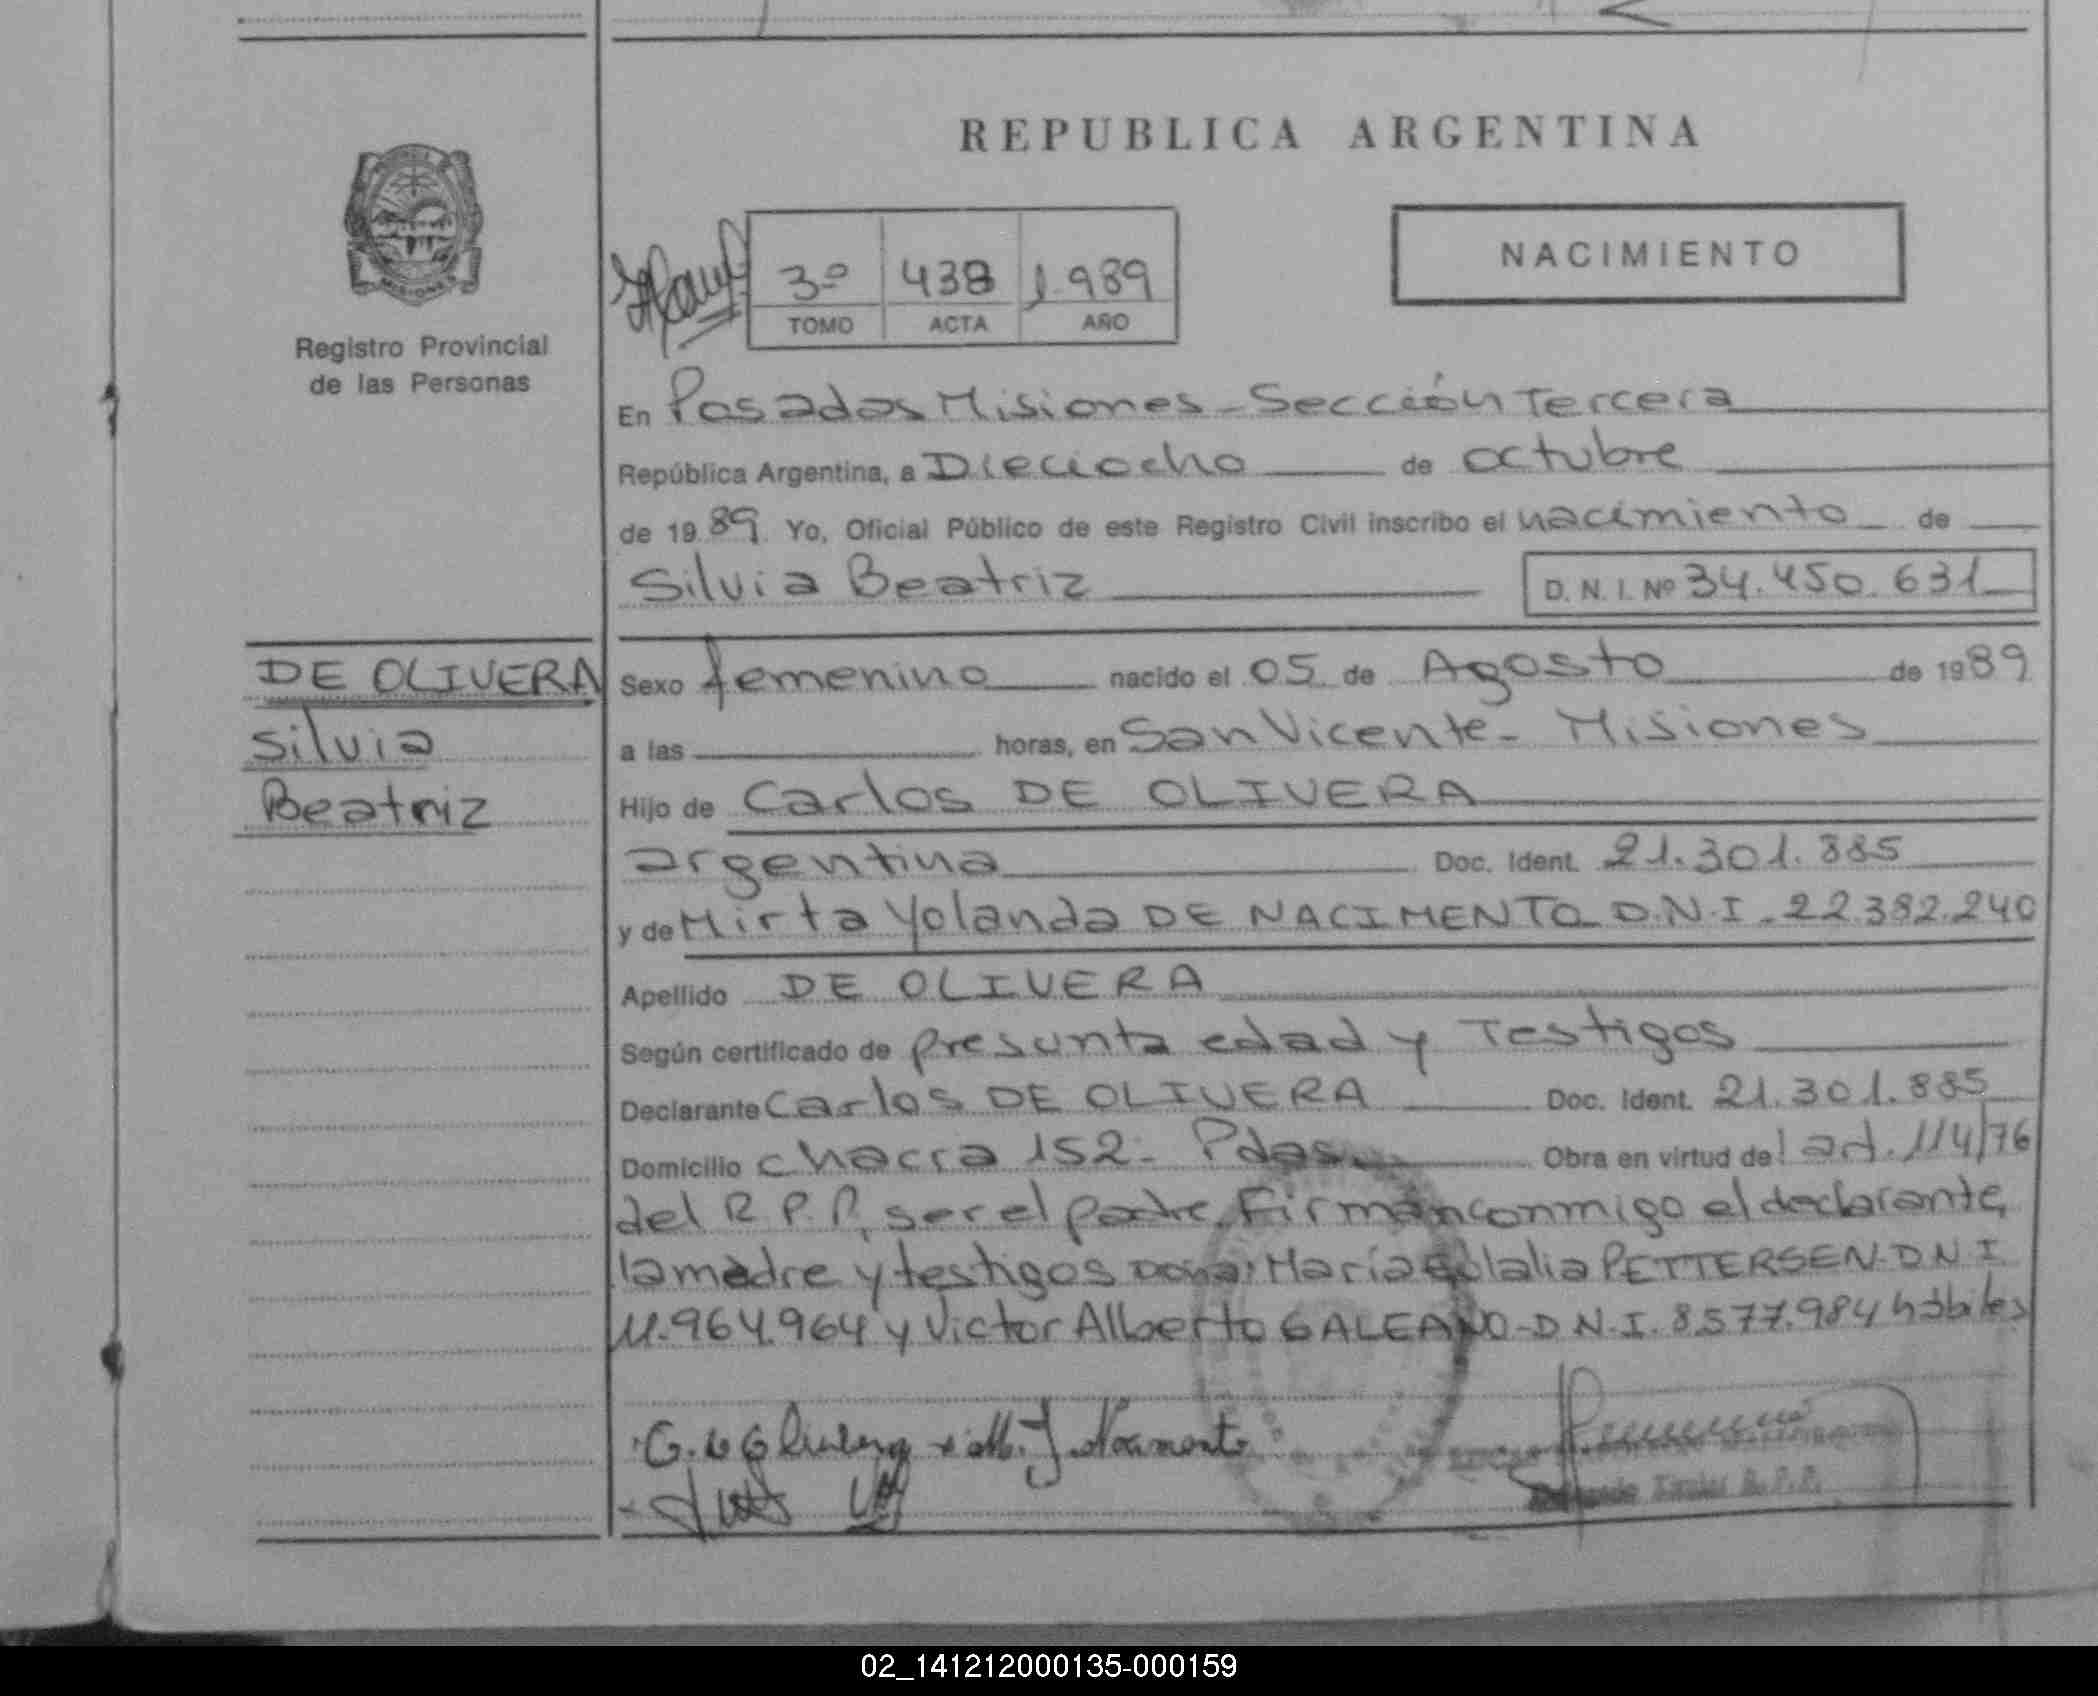 REPUBLICA ARGENTINA
NACIMIENTO
3º 438 1.989
TOMO ACTA AÑO
MISIONES
Registro Provincial
de las Personas
En Posadas Misiones - Sección Tercera
República Argentina, a Dieciocho de octubre
de 1989. Yo, Oficial Público de este Registro Civil inscribo el nacimiento de
Silvia Beatriz D. N. I. Nº 34.450.631
DE OLIVERA
Silvia
Beatriz
Sexo femenino nacido el 05 de Agosto de 1989
a las horas, en San Vicente - Misiones
Hijo de Carlos DE OLIVERA
argentina Doc. Ident. 21.301.885
y de Mirta Yolanda DE NACIMENTO D.N.I. 22.382.240
Apellido DE OLIVERA
Según certificado de presunta edad y Testigos
Declarante Carlos DE OLIVERA Doc. Ident. 21.301.885
Domicilio chacra 152 - Pdas. Obra en virtud del art. 114/76
del R.P.P, ser el padre. Firman conmigo el declarante,
la madre y testigos María Eulalia PETTERSEN D.N.I
11.964.964 y Victor Alberto GALEANO - D.N.I. 8.577.984 hábiles
02_141212000135-000159